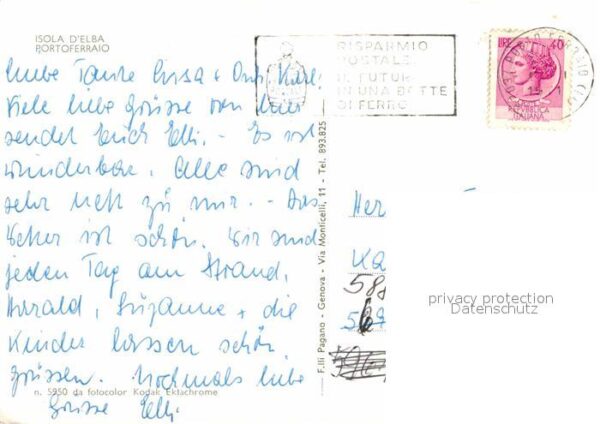 ISOLA D'ELBA
PORTOFERRAIO
Liebe Tante Luisa + Onk. Karl,
Viele liebe Grüsse von hier
sendet Euch Elli. - Es ist
wunderbar. Alle sind
sehr nett zu mir. - Das
Wetter ist schön. Wir sind
jeden Tag am Strand.
Harald, Suzanne + die
Kinder lassen schön
grüssen. Nochmals liebe
Grüsse Elli
n. 5950 da fotocolor Kodak Ektachrome
F.lli Pagano - Genova - Via Monticelli, 11 - Tel. 893.825
RISPARMIO
POSTALE
IL FUTUR
IN UNA BOTTE
DI FERRO
LIRE 40
REPVBBLICA
ITALIANA
Her
Ka
58
privacy protection
Datenschutz